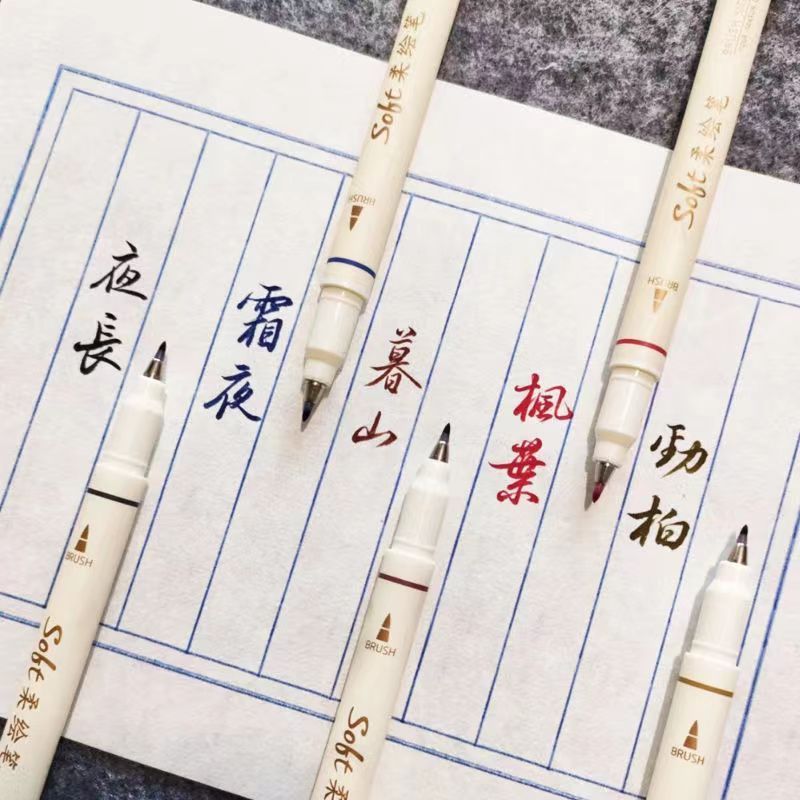 Soft 柔绘笔
BRUSH
Soft 柔绘笔
BRUSH
夜長
霜夜
暮山
楓葉
勁柏
BRUSH
Soft 柔绘笔
BRUSH
Soft 柔
BRUSH